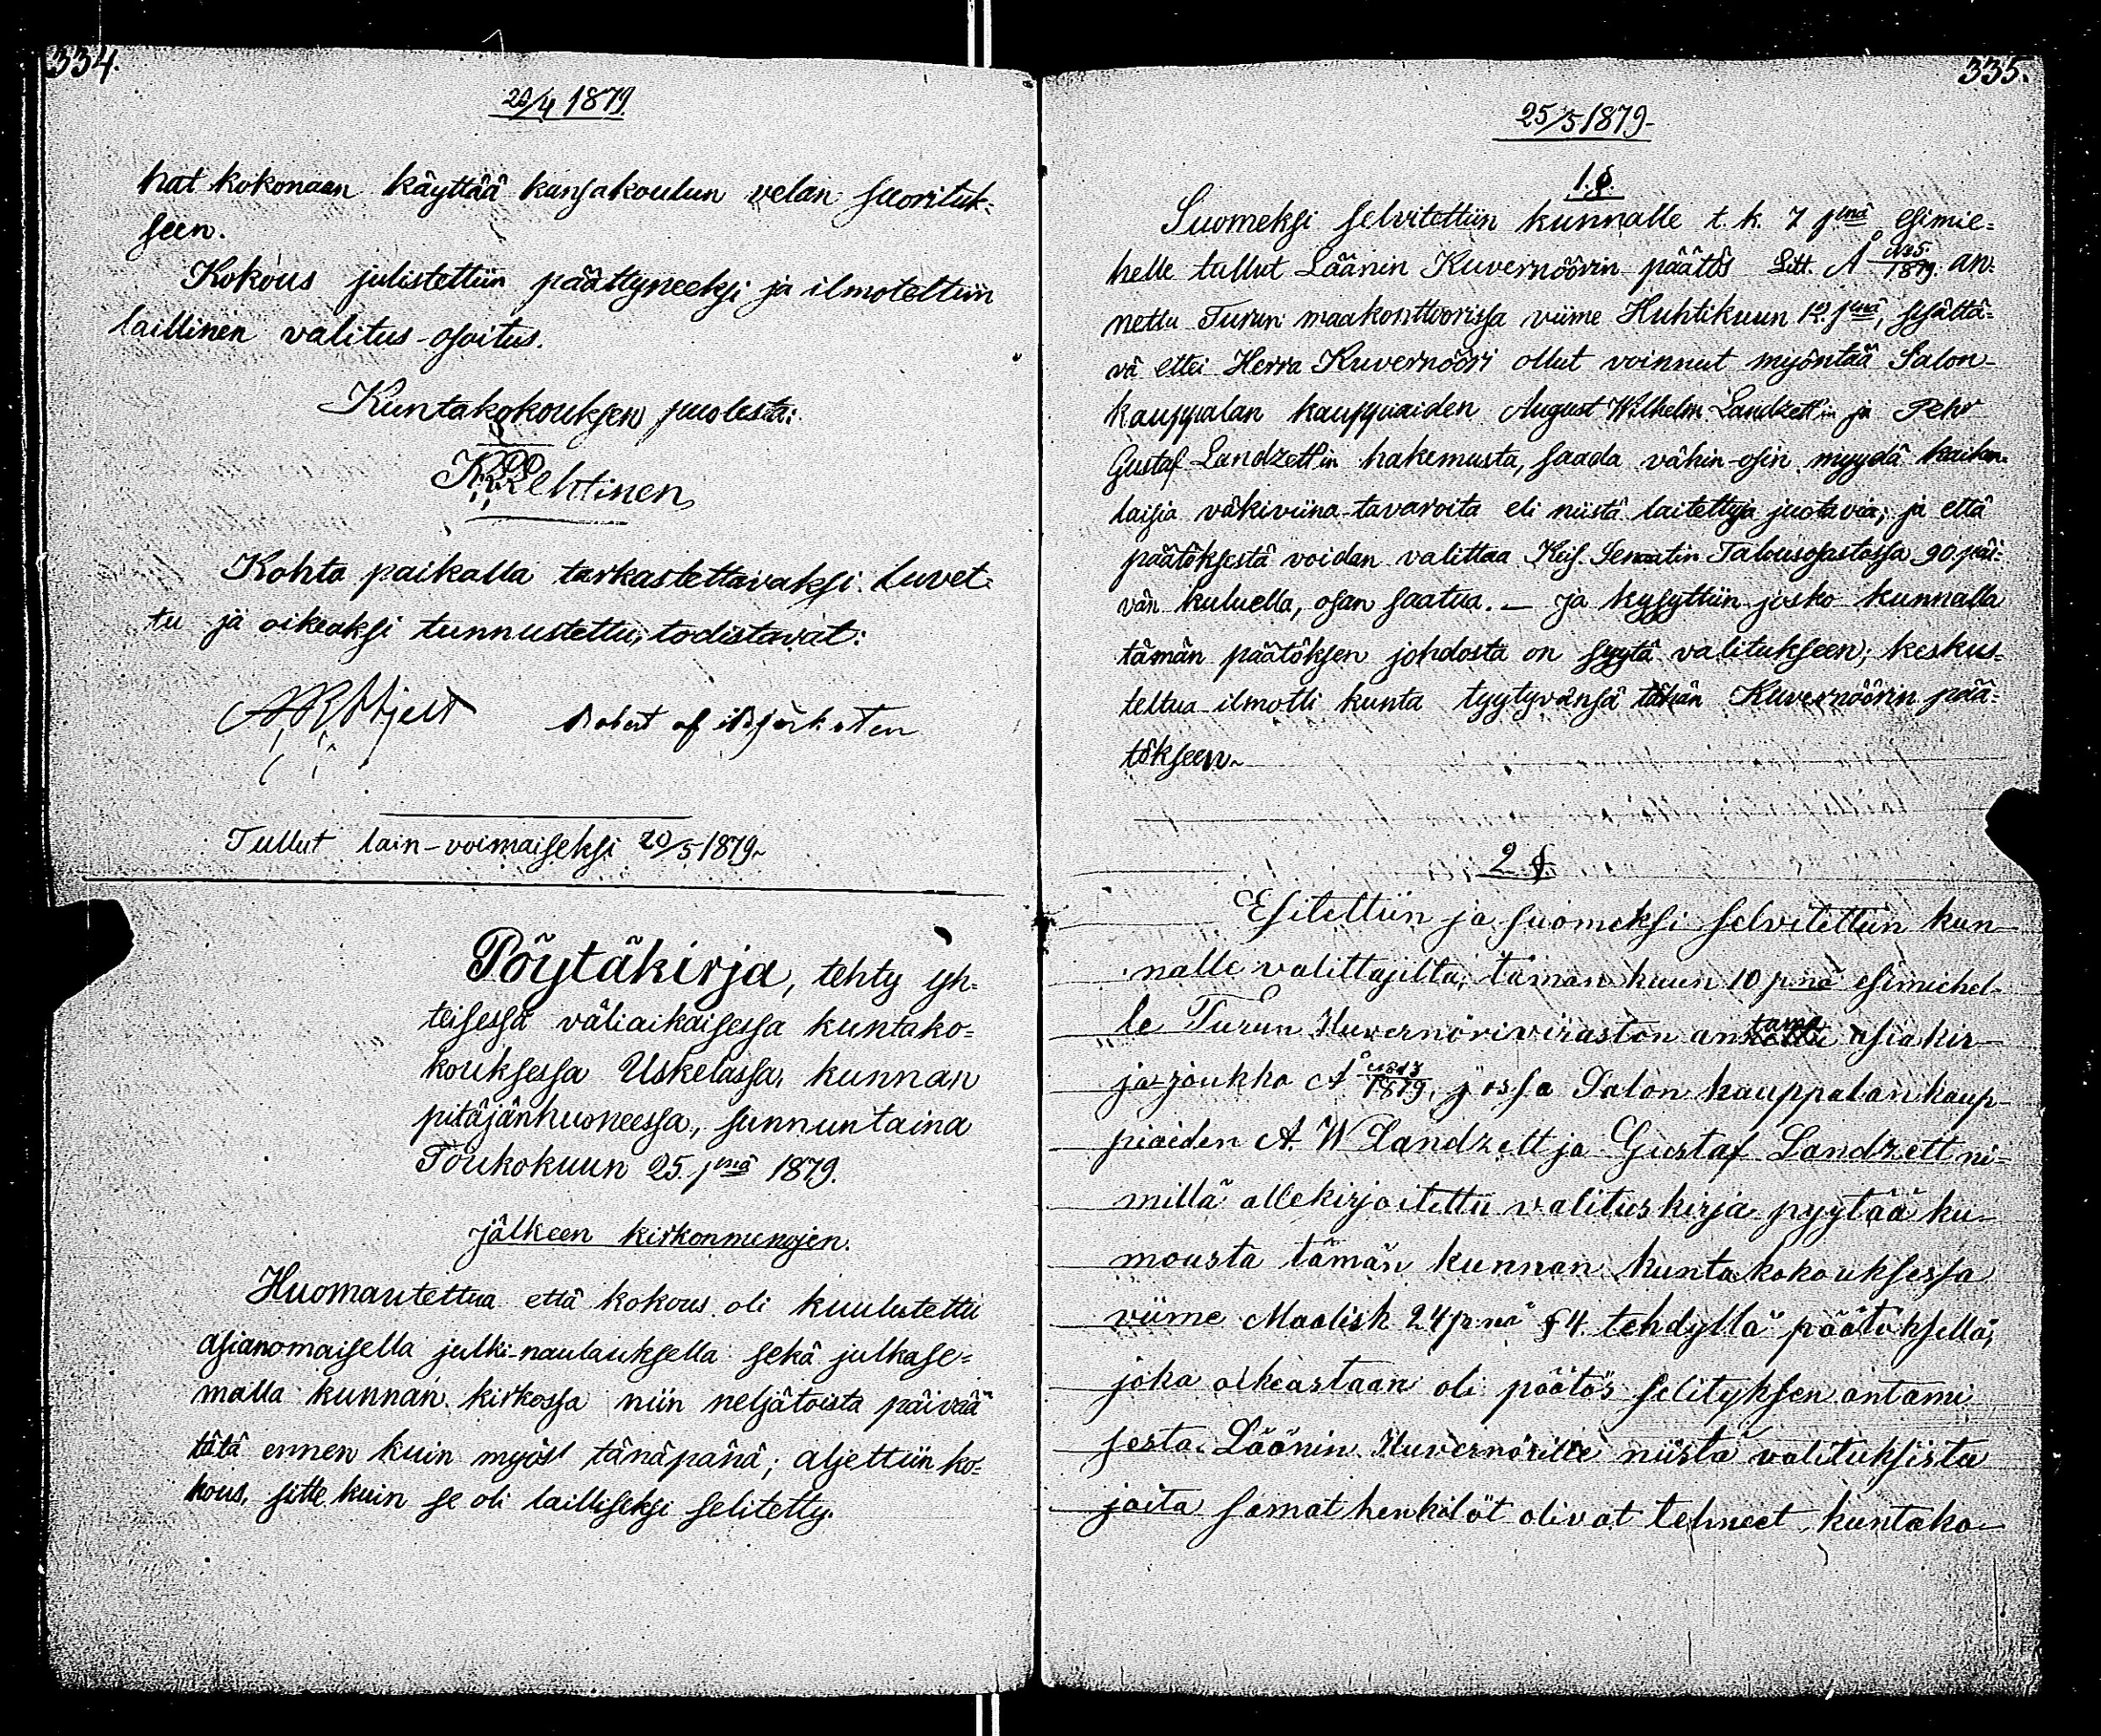 334.
20/4 1879.
hat kokonaan käyttää kansakoulun velan suorituk-
seen.
Kokous julistettiin päättyneeksi ja ilmotettiin
laillinen valitus-osoitus.
Kuntakokouksen puolesta:
Lehtinen
Kohta paikalla tarkastettavaksi luvet-
tu ja oikeaksi tunnustettu, todistavat:
Robert af
Tullut lain-voimaiseksi 20/5 1879.
Pöytäkirja, tehty yh-
teisessä väliaikaisessa kuntako-
kouksessa Uskelassa, kunnan
pitäjänhuoneessa, sunnuntaina
Toukokuun 25. pnä 1879.
jälkeen kirkonmenojen.
Huomautettua että kokous oli kuulutettu
asianomaisella julki-naulauksella sekä julkase-
malla kunnan kirkossa niin neljätoista päivää
tätä ennen kuin myös tänäpänä; aljettiin ko-
kous, sitte kuin se oli lailliseksi selitetty.
335.
25/5 1879.
1. §.
Suomeksi selvitettiin kunnalle t. k. 7 pnä esimie-
helle tullut Läänin Kuvernöörin päätös Litt. A 1879. an-
nettu Turun maakonttoorissa viime Huhtikuun pnä, sisältä-
vä ettei Herra Kuvernööri ollut voinnut myöntää Salon
kauppalan kauppiaiden August Wilhelm Landzett'in ja Pehr
Gustaf Landzett'in hakemusta, saada vähin-osin myydä kaiken-
laisia väkiviina-tavaroita eli niistä laitettyja juotavia; ja että
päätöksestä voidan valittaa Keis. Senaatin Talousosastossa 90 päi-
vän kuluella, osan saatua. — ja kysyttiin josko kunnalla
tämän päätöksen johdosta on syytä valitukseen; keskus-
teltua ilmotti kunta tyytyvänsä tähän Kuvernöörin pää-
tökseen.
2 §.
Esitettiin ja suomeksi selvitettiin kun-
nalle valittajilta, tämän kuun 10 pnä esimiehel-
le Turun Kuvernöriviraston antama asiakir-
ja-joukko A 1879, jossa Salon kauppalan kaup-
piaiden A. W Landzett ja Gustaf Landzett ni-
millä allekirjoitettu valituskirja pyytää ku-
mousta tämän kunnan kuntakokouksessa
viime Maalisk 24 pnä § 4 tehdyllä päätöksellä,
joka oikeastaan oli päätös selityksen antami
sesta Läänin Kuvernörille niistä valituksista
joita samat henkilöt olivat tehneet kuntako-